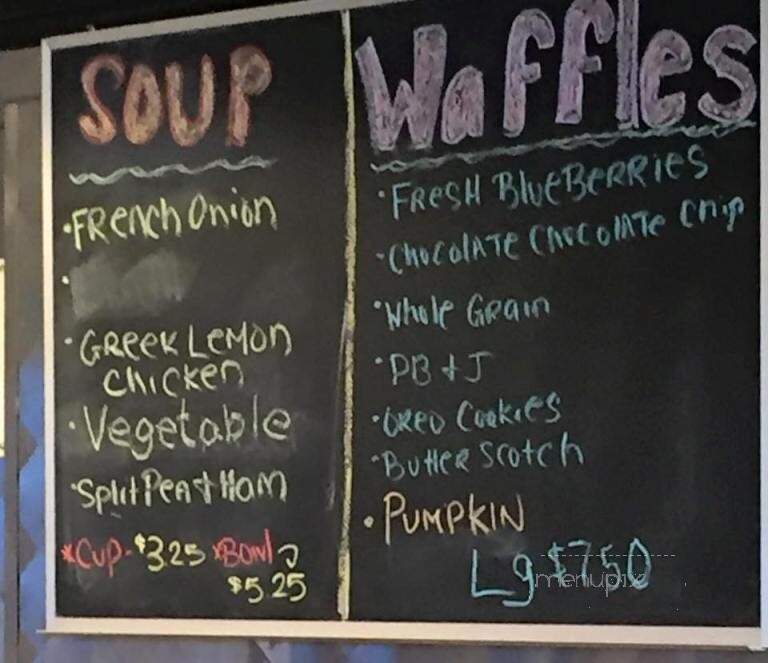 SOUP
•FRench Onion
•
•GREEK LEMON
CHICKEN
•Vegetable
•Split Pea + Ham
*CUP-$3.25 *Bowl
$5.25
Waffles
•FRESH BlueBeRRies
•CHocolATe CHocolATe CHip
•Whole GRain
•PB + J
•OReo Cookies
•ButteR Scotch
•PUMPKIN
Lg $7.50
menupix